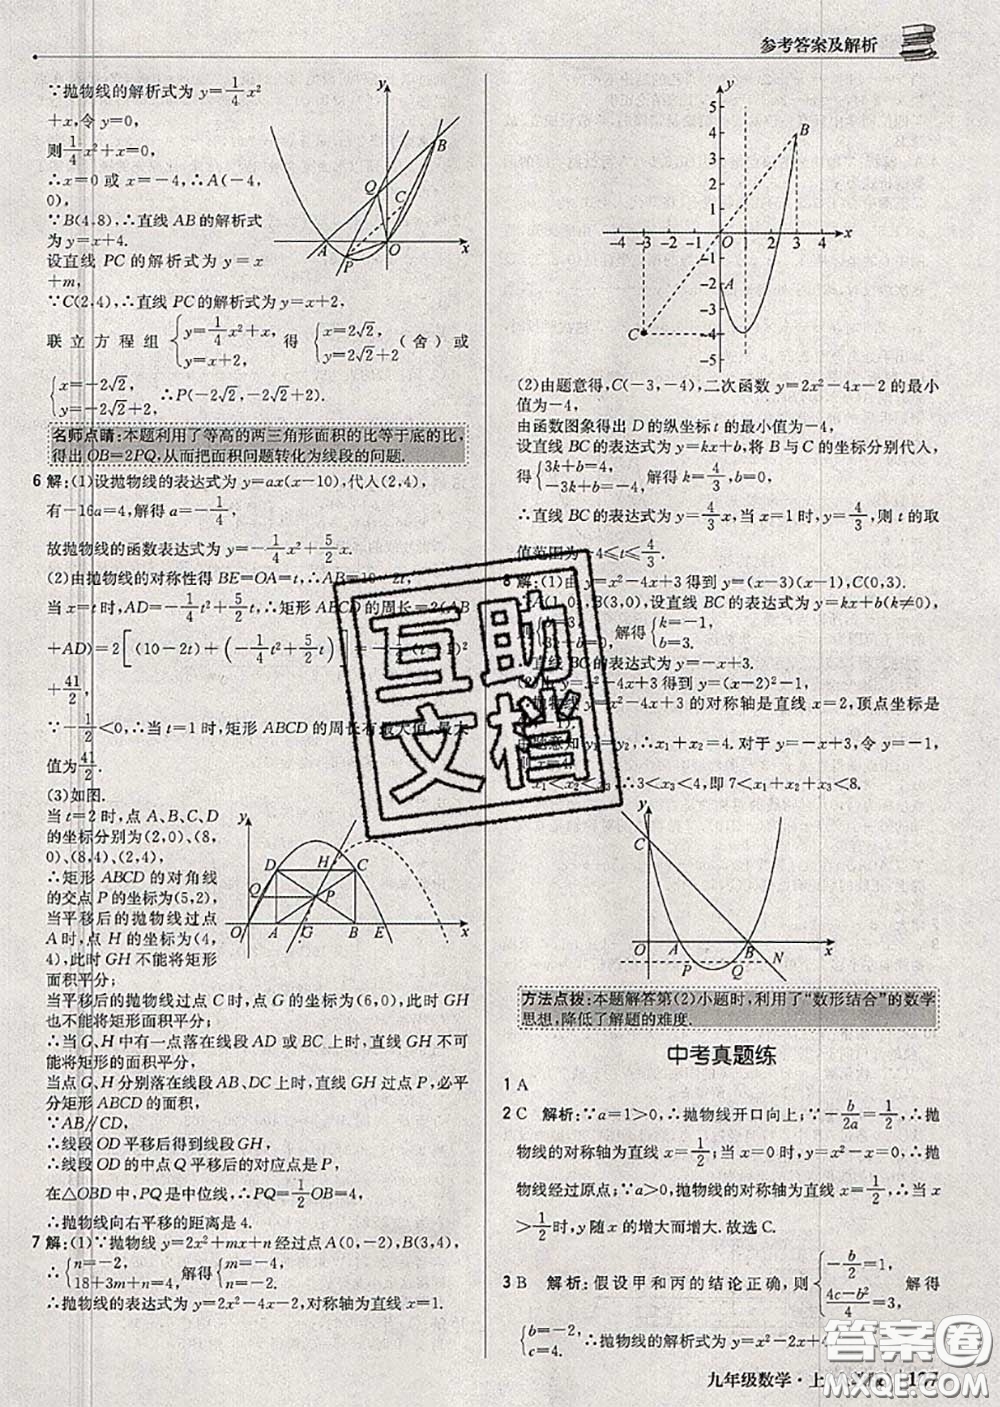 参考答案及解析
∵抛物线的解析式为 y=1/4x²
+x,令 y=0,
则1/4x²+x=0,
∴x=0 或 x=-4,∴A(-4,
0),
∵B(4,8),∴直线 AB 的解析式
为 y=x+4.
设直线 PC 的解析式为 y=x
+m,
∵C(2,4),∴直线 PC 的解析式为 y=x+2,
联立方程组 {y=1/4x²+x, y=x+2, 得 {x=2√2, y=2√2+2 (舍)或
{x=-2√2, y=-2√2+2, ∴P(-2√2,-2√2+2).
名师点睛:本题利用了等高的两三角形面积的比等于底的比,
得出 OB=2PQ,从而把面积问题转化为线段的问题.
6 解:(1)设抛物线的表达式为 y=ax(x-10),代入(2,4),
有-16a=4,解得 a=-1/4,
故抛物线的函数表达式为 y=-1/4x²+5/2x.
(2)由抛物线的对称性得 BE=OA=t,∴AB=10-2t,
当 x=t 时,AD=-1/4t²+5/2t,∴矩形 ABCD 的周长=2(AB
+AD)=2[(10-2t)+(-1/4t²+5/2t)]=-1/2(t-1)²
+41/2,
∵-1/2<0,∴当 t=1 时,矩形 ABCD 的周长有最大值,最大
值为41/2.
(3)如图.
当 t=2 时,点 A、B、C、D
的坐标分别为(2,0)、(8,
0)、(8,4)、(2,4),
∴矩形 ABCD 的对角线
的交点 P 的坐标为(5,2),
当平移后的抛物线过点
A 时,点 H 的坐标为(4,
4),此时 GH 不能将矩形
面积平分;
当平移后的抛物线过点 C 时,点 G 的坐标为(6,0),此时 GH
也不能将矩形面积平分;
∴当 G、H 中有一点落在线段 AD 或 BC 上时,直线 GH 不可
能将矩形的面积平分,
当点 G、H 分别落在线段 AB、DC 上时,直线 GH 过点 P,必平
分矩形 ABCD 的面积,
∵AB∥CD,
∴线段 OD 平移后得到线段 GH,
∴线段 OD 的中点 Q 平移后的对应点是 P,
在△OBD 中,PQ 是中位线,∴PQ=1/2OB=4,
∴抛物线向右平移的距离是 4.
7 解:(1)∵抛物线 y=2x²+mx+n 经过点 A(0,-2),B(3,4),
∴{n=-2, 18+3m+n=4, 解得{m=-4, n=-2,
∴抛物线的表达式为 y=2x²-4x-2,对称轴为直线 x=1.
(2)由题意得,C(-3,-4),二次函数 y=2x²-4x-2 的最小
值为-4,
由函数图象得出 D 的纵坐标 t 的最小值为-4,
设直线 BC 的表达式为 y=kx+b,将 B 与 C 的坐标分别代入,
得{3k+b=4, -3k+b=-4, 解得 k=4/3,b=0,
∴直线 BC 的表达式为 y=4/3x,当 x=1 时,y=4/3,则 t 的取
值范围为-4≤t≤4/3.
8 解:(1)由 y=x²-4x+3 得到 y=(x-3)(x-1),C(0,3).
∴A(1,0),B(3,0),设直线 BC 的表达式为 y=kx+b(k≠0),
则{b=3, 3k+b=0, 解得{k=-1, b=3.
∴直线 BC 的表达式为 y=-x+3.
(2)由 y=x²-4x+3 得到 y=(x-2)²-1,
∴抛物线 y=x²-4x+3 的对称轴是直线 x=2,顶点坐标是
(2,-1).
由题意知 y₁=y₂,∴x₁+x₂=4. 对于 y=-x+3,令
x₁<x₂<x₃,∴3<x₃<4,即 7<x₁+x₂+x₃<8.
方法点拨:本题解答第(2)小题时,利用了“数形结合”的数学
思想,降低了解题的难度.
中考真题练
1 A
2 C 解析:∵a=1>0,∴抛物线开口向上;∵-b/2a=1/2,∴抛
物线的对称轴为直线 x=1/2;当 x=0 时,y=0,∴抛
物线经过原点;∵a>0,抛物线的对称轴为直线 x=1/2,∴当 x
>1/2时,y 随 x 的增大而增大. 故选 C.
3 B 解析:假设甲和丙的结论正确,则{-b/2=1, (4c-b²)/4=3, 解得
{b=-2, c=4. ∴抛物线的解析式为 y=x²-2x+4
九年级数学·上
互助
文档
答案圈
MXQE.COM